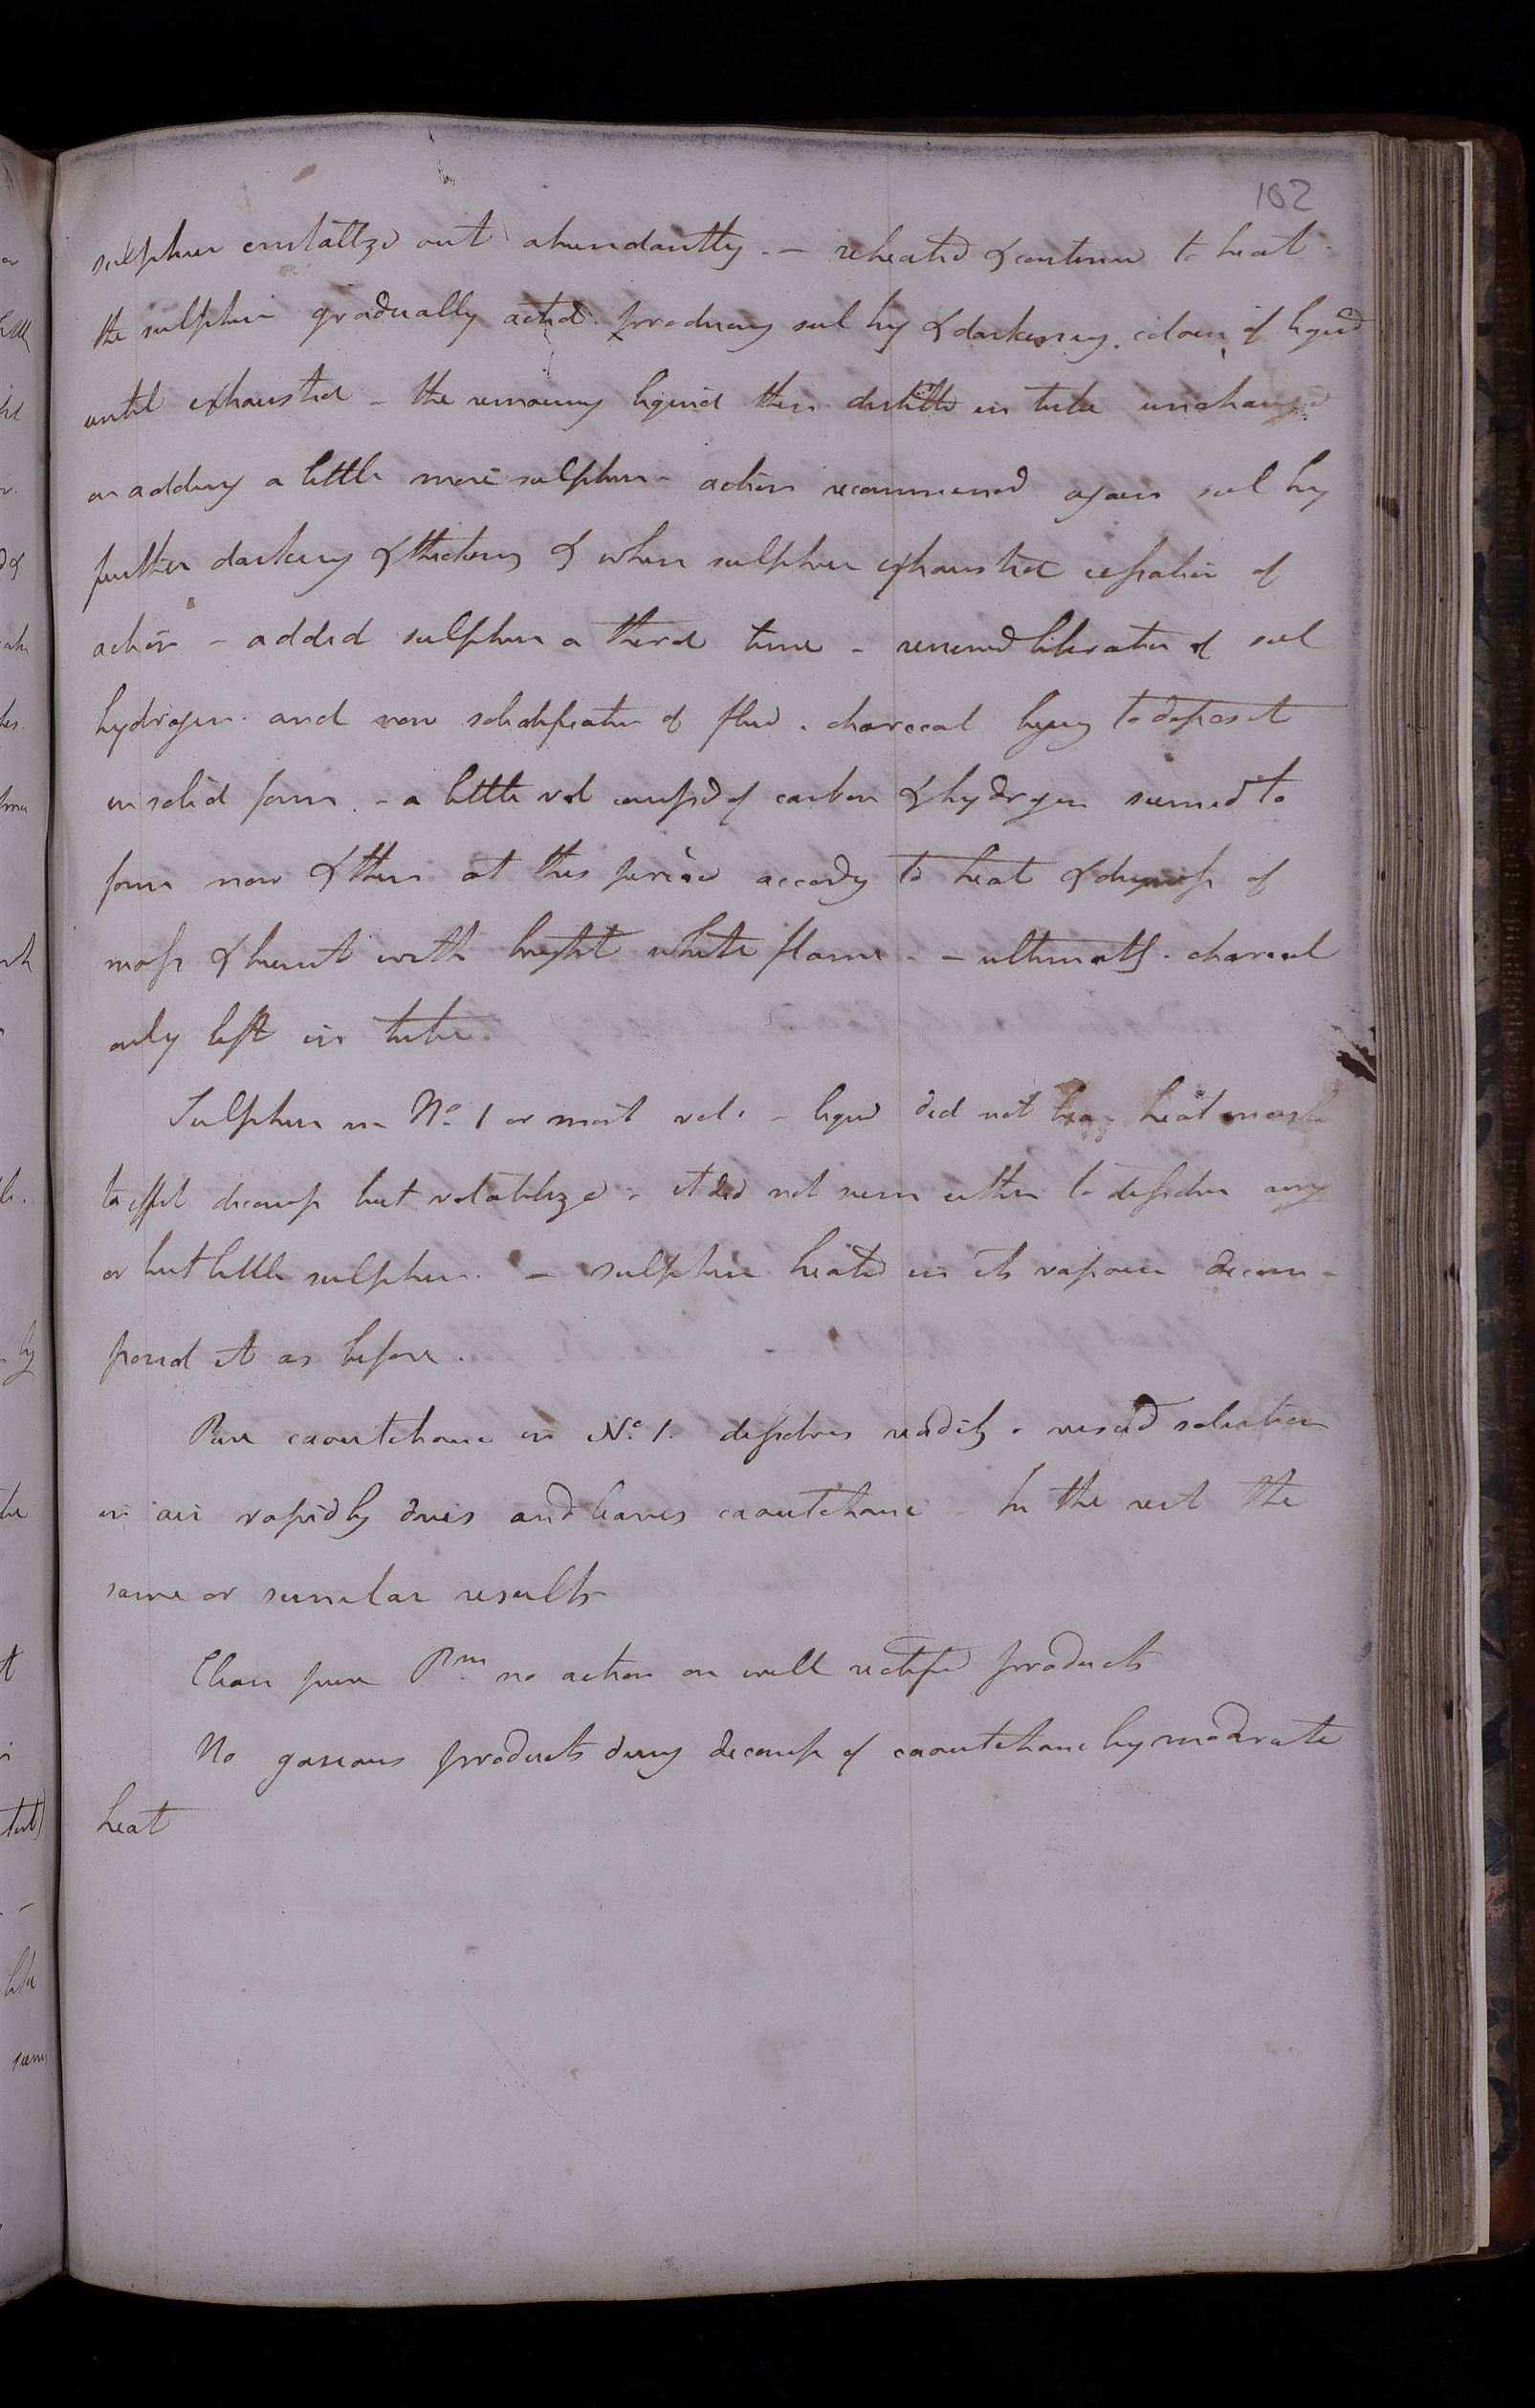 102
sulphur crystallizd out abundantly. - reheated & continued to heat
the sulphur gradually acted. producing sul hy & darkening. colour of liquid
until exhausted - the remaining liquid then distilled in tube unchanged
on adding a little more sulphur - action recommenced again sul hy
further darkeng & thickeng & when sulphur exhausted cessation of
action - added sulphur a third time - renewed liberation of sul
hydrogen. and now solidification of fluid. charcoal beging to deposit
in solid form. - a little vol compd of carbon & hydrogen seemed to
form now & then at this period accordg to heat & dryness of
mass & burnt with bright white flame - - ultimately. charcoal
only left in tube.
Sulphur in No. 1 or most vol. - liquid did not bear heat enough
to effect decomp but volatilized - it did not seem either to dissolve any
or but little sulphur. - sulphur heated in its vapour decom-
posed it as before.
Pure caoutchouc in No. 1. dissolves readily - viscid solution
in air rapidly dries and leaves caoutchouc - In the rest the
same or similar results
Clean pure Pm no action on well rectified products
No gaseous products durg decomp of caoutchouc by moderate
heat